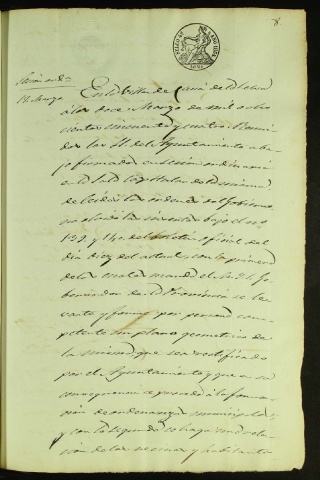 8.
SELLO 4º AÑO 1854
Sesion ordª
12. Marzo
En la Villa de de la
á los doce Marzo de mil ocho
cientos cincuenta y cuatro Reuni
dos los SS. del Ayuntamiento aba
jo firmados en sesion ordinaria
en la Sala Capitular de la misma
de leidas las ordenes del Gobierno
bajo el nº
139. y 140. del boletin oficial del
dia diez del actual, con la primera
de las cuales manda el Sr. Go
bernador de la Provincia se le
vante y forme por persona com
petente un plano geometrico de
la misma que sea rectificado
por el Ayuntamiento y que a su
consecuencia se proceda á la forma
cion de ordenanzas municipales
y con la segunda se haga una rela
cion de los vecinos y habitante